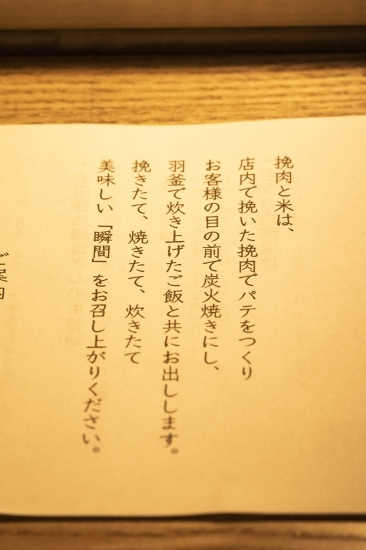 挽肉と米は、
店内で挽いた挽肉でパテをつくり
お客様の目の前で炭火焼きにし、
羽釜で炊き上げたご飯と共にお出しします。
挽きたて、焼きたて、炊きたて
美味しい「瞬間」をお召し上がりください。
ご案内